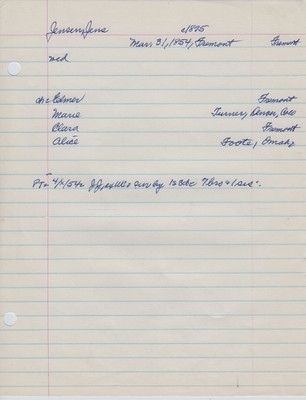 Jensen, Jens c1895
Mar 31, 1954, Fremont Fremont
wid
ch: Elmer Fremont
Marie Turner, Denver, Colo
Clara Fremont
Alice Foote, Omaha
4/1/54: surv by 12 gdc 7 bro & 1 sis".